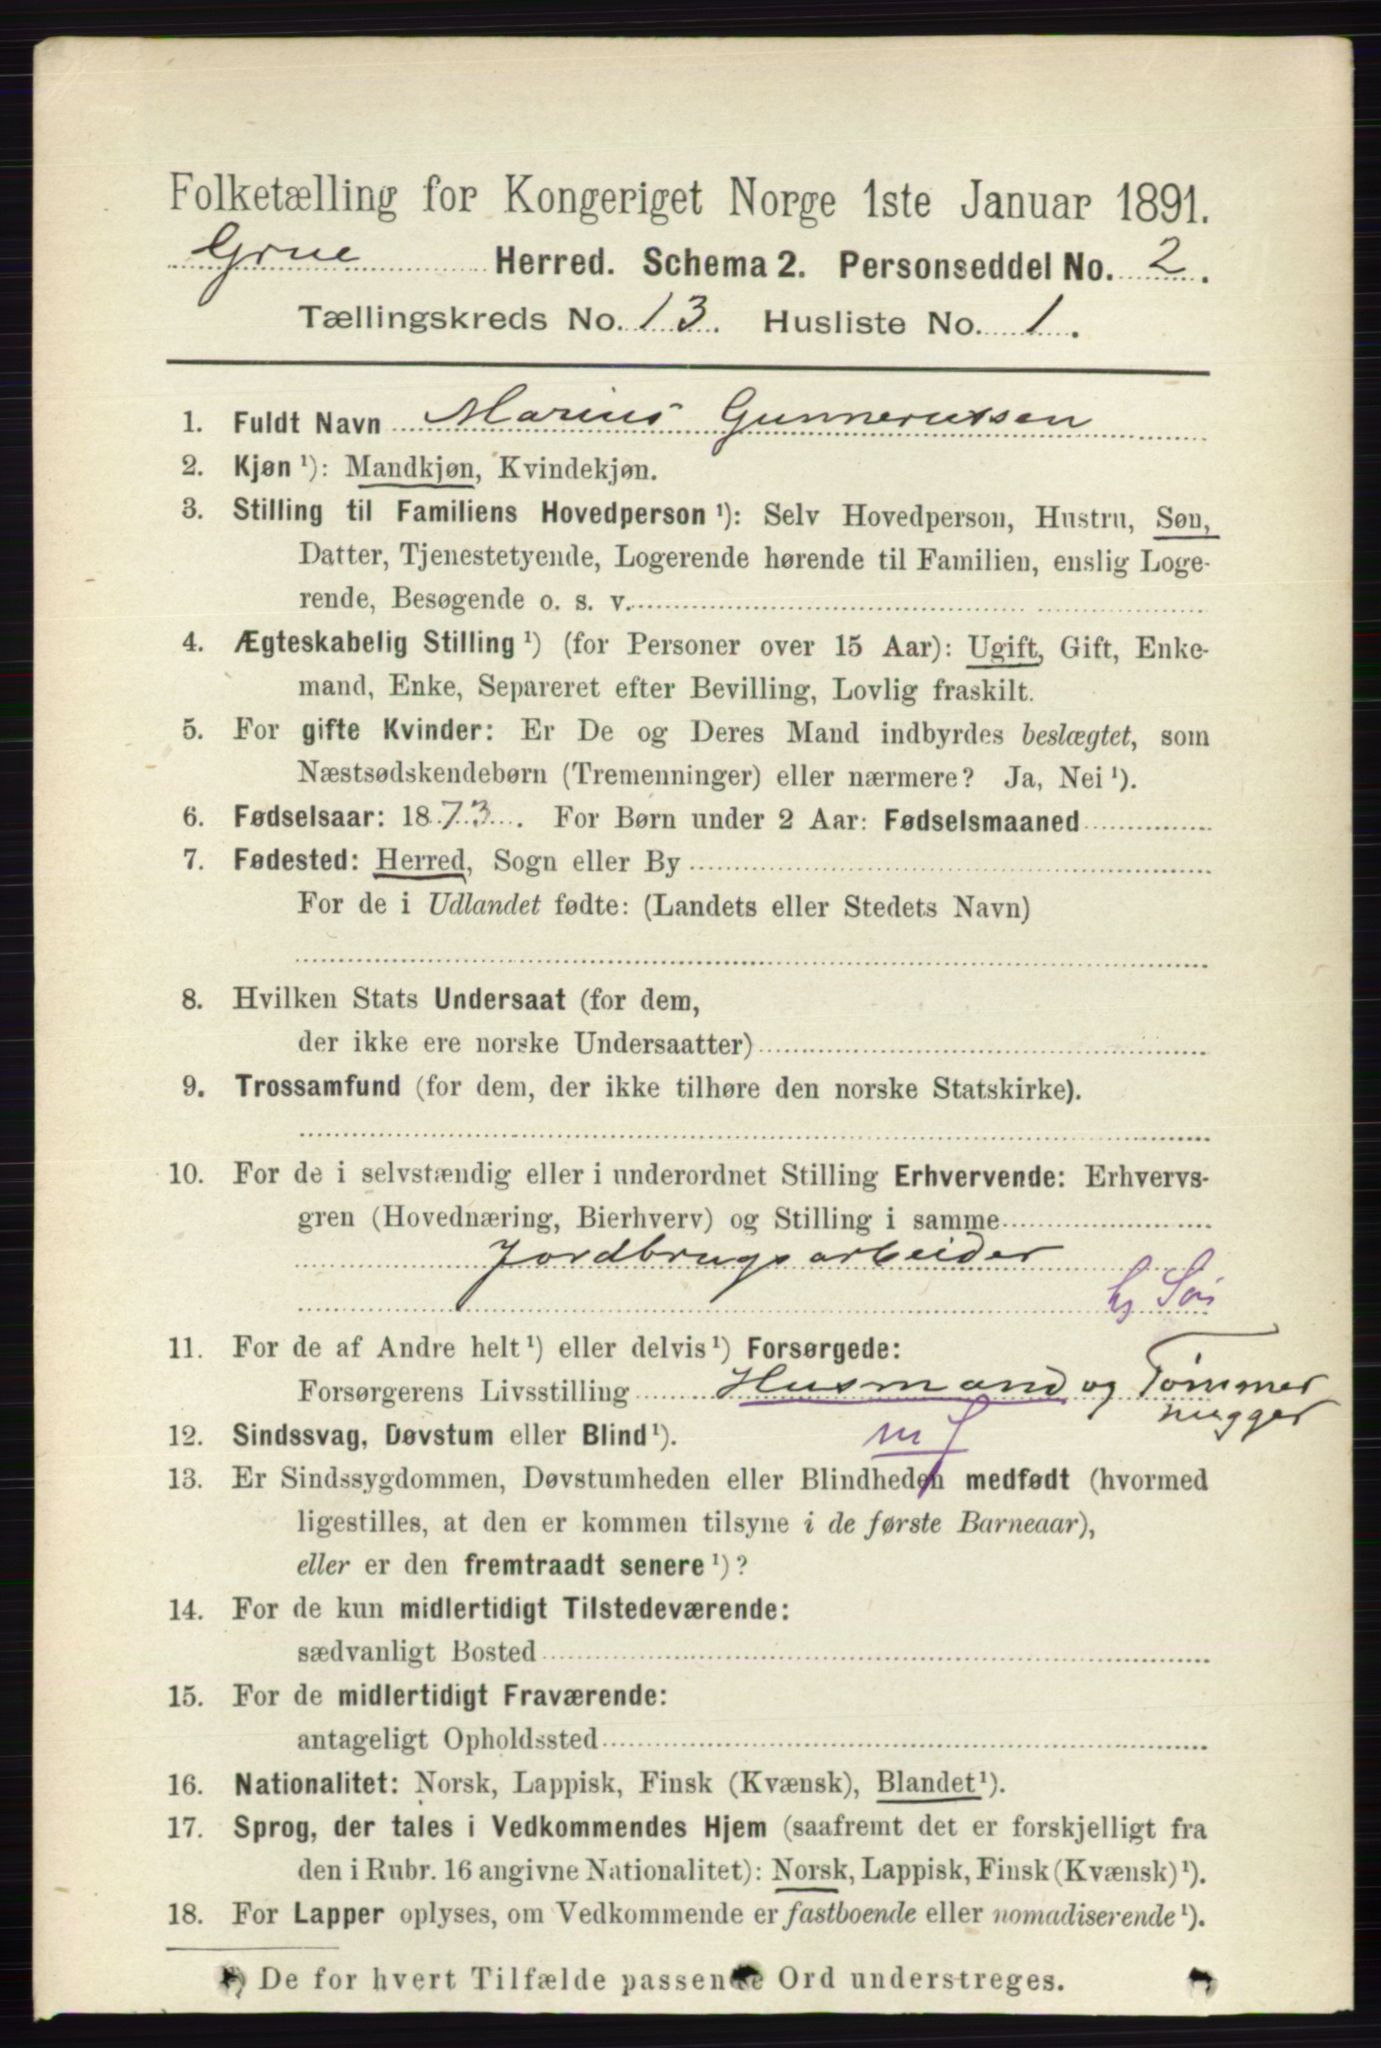 Folketælling for Kongeriget Norge 1ste Januar 1891.
Grue Herred. Schema 2. Personseddel No. 2.
Tællingskreds No. 13. Husliste No. 1.
1. Fuldt Navn Marius Gunnerutsen
2. Kjøn ¹): Mandkjøn, Kvindekjøn.
3. Stilling til Familiens Hovedperson ¹): Selv Hovedperson, Hustru, Søn,
Datter, Tjenestetyende, Logerende hørende til Familien, enslig Loge-
rende, Besøgende o. s. v.
4. Ægteskabelig Stilling ¹) (for Personer over 15 Aar): Ugift, Gift, Enke-
mand, Enke, Separeret efter Bevilling, Lovlig fraskilt.
5. For gifte Kvinder: Er De og Deres Mand indbyrdes beslægtet, som
Næstsødskendebørn (Tremenninger) eller nærmere? Ja, Nei ¹).
6. Fødselsaar: 1873. For Børn under 2 Aar: Fødselsmaaned
7. Fødested: Herred, Sogn eller By
For de i Udlandet fødte: (Landets eller Stedets Navn)
8. Hvilken Stats Undersaat (for dem,
der ikke ere norske Undersaatter)
9. Trossamfund (for dem, der ikke tilhøre den norske Statskirke).
10. For de i selvstændig eller i underordnet Stilling Erhvervende: Erhvervs-
gren (Hovednæring, Bierhverv) og Stilling i samme
Jordbrugsarbeider
11. For de af Andre helt ¹) eller delvis ¹) Forsørgede:
Forsørgerens Livsstilling Husmand og Tømmer
hugger
12. Sindssvag, Døvstum eller Blind ¹).
13. Er Sindssygdommen, Døvstumheden eller Blindheden medfødt (hvormed
ligestilles, at den er kommen tilsyne i de første Barneaar),
eller er den fremtraadt senere ¹)?
14. For de kun midlertidigt Tilstedeværende:
sædvanligt Bosted
15. For de midlertidigt Fraværende:
antageligt Opholdssted
16. Nationalitet: Norsk, Lappisk, Finsk (Kvænsk), Blandet ¹).
17. Sprog, der tales i Vedkommendes Hjem (saafremt det er forskjelligt fra
den i Rubr. 16 angivne Nationalitet): Norsk, Lappisk, Finsk (Kvænsk) ¹).
18. For Lapper oplyses, om Vedkommende er fastboende eller nomadiserende ¹).
¹) De for hvert Tilfælde passende Ord understreges.